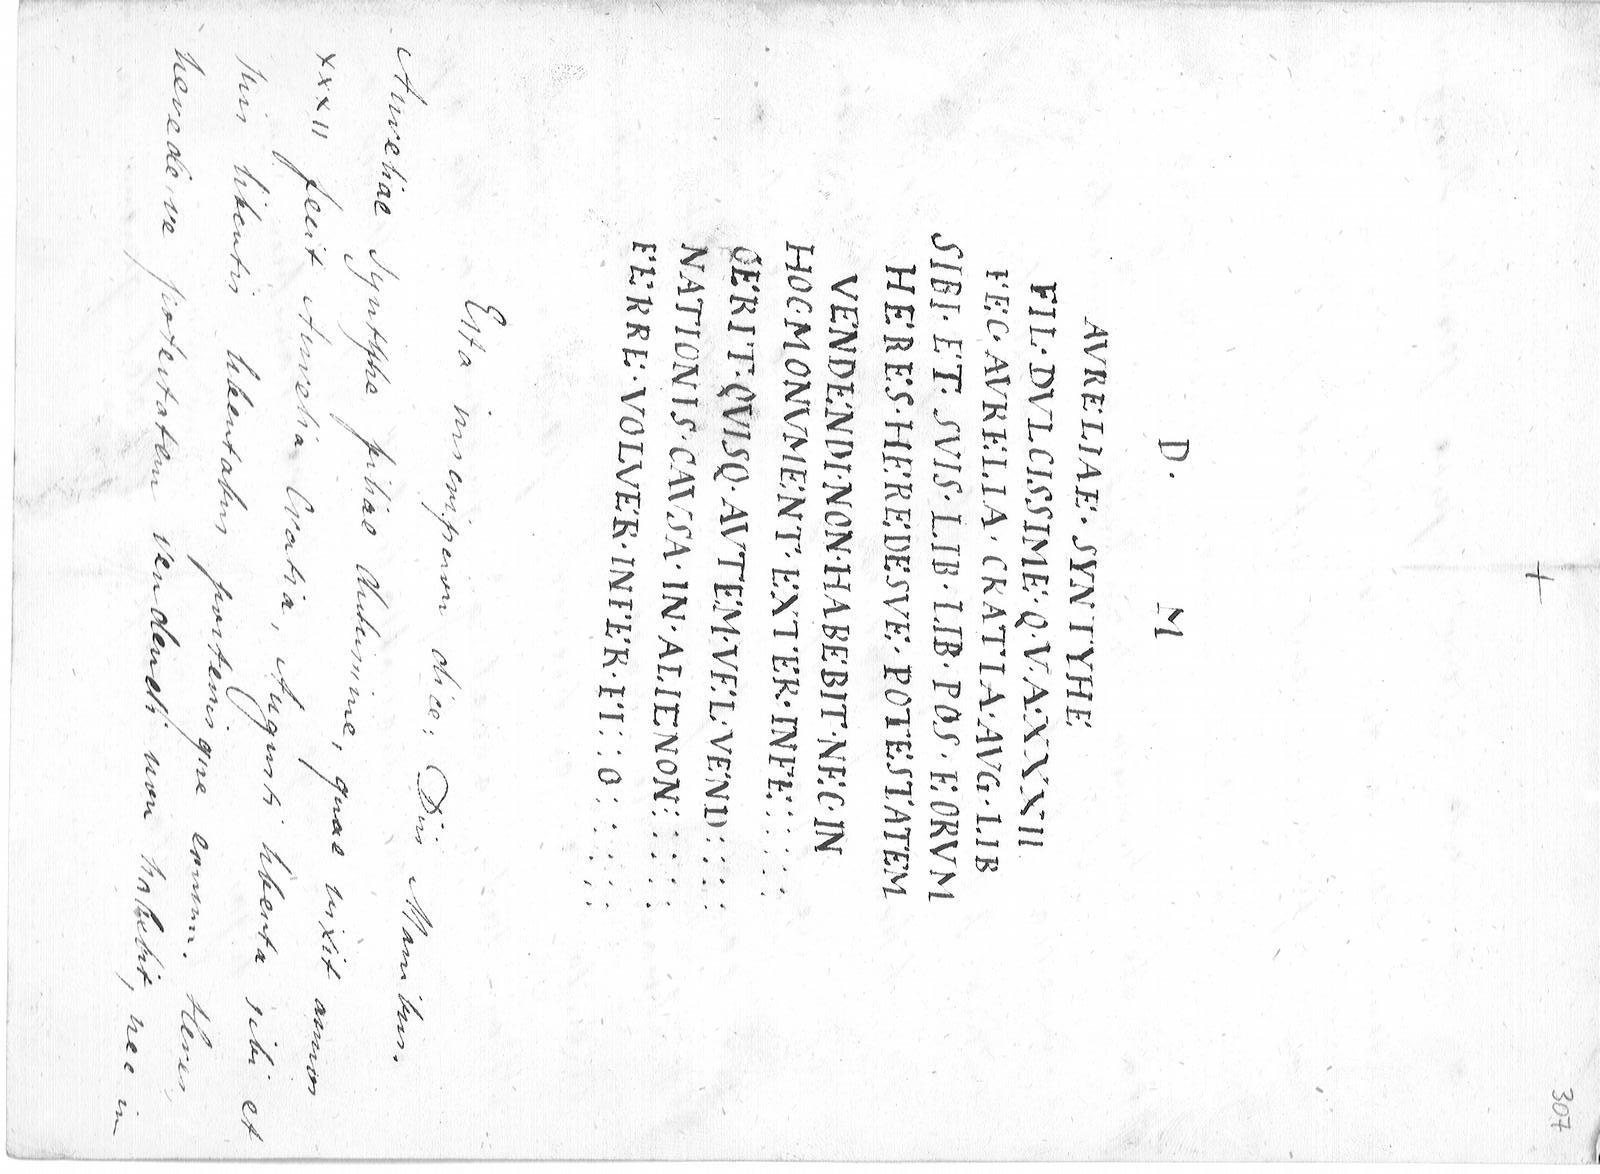 307
+
D. M
AVRELIAE · SYNTYHE
FIL · DVLCISSIME · Q · V · A · XXXII
FEC · AVRELIA · CRATIA · AVG · LIB
SIBI · ET · SVIS · LIB · LIB · POS · EORVM
HERES · HEREDESVE · POTESTATEM
VENDENDI · NON · HABEBIT · NEC · IN
HOC · MONVMENT · EXTER · INFE : : : :
GERIT · QVISQ · AVTEM · VEL · VEND : : : :
NATIONIS · CAVSA · IN · ALIENON : : : :
FERRE · VOLVER · INFER · FI : : O : : : :
Esta inscripcion dice: Diis Manibus.
Aureliae Syntyhe filiae dulcissime, quae vixit annos
XXXII fecit Aurelia Cratia, Augusti liberta sibi et
suis libertis libertabus posterisque eorum. Heres,
heredesve potestatem vendendi non habebit, nec in